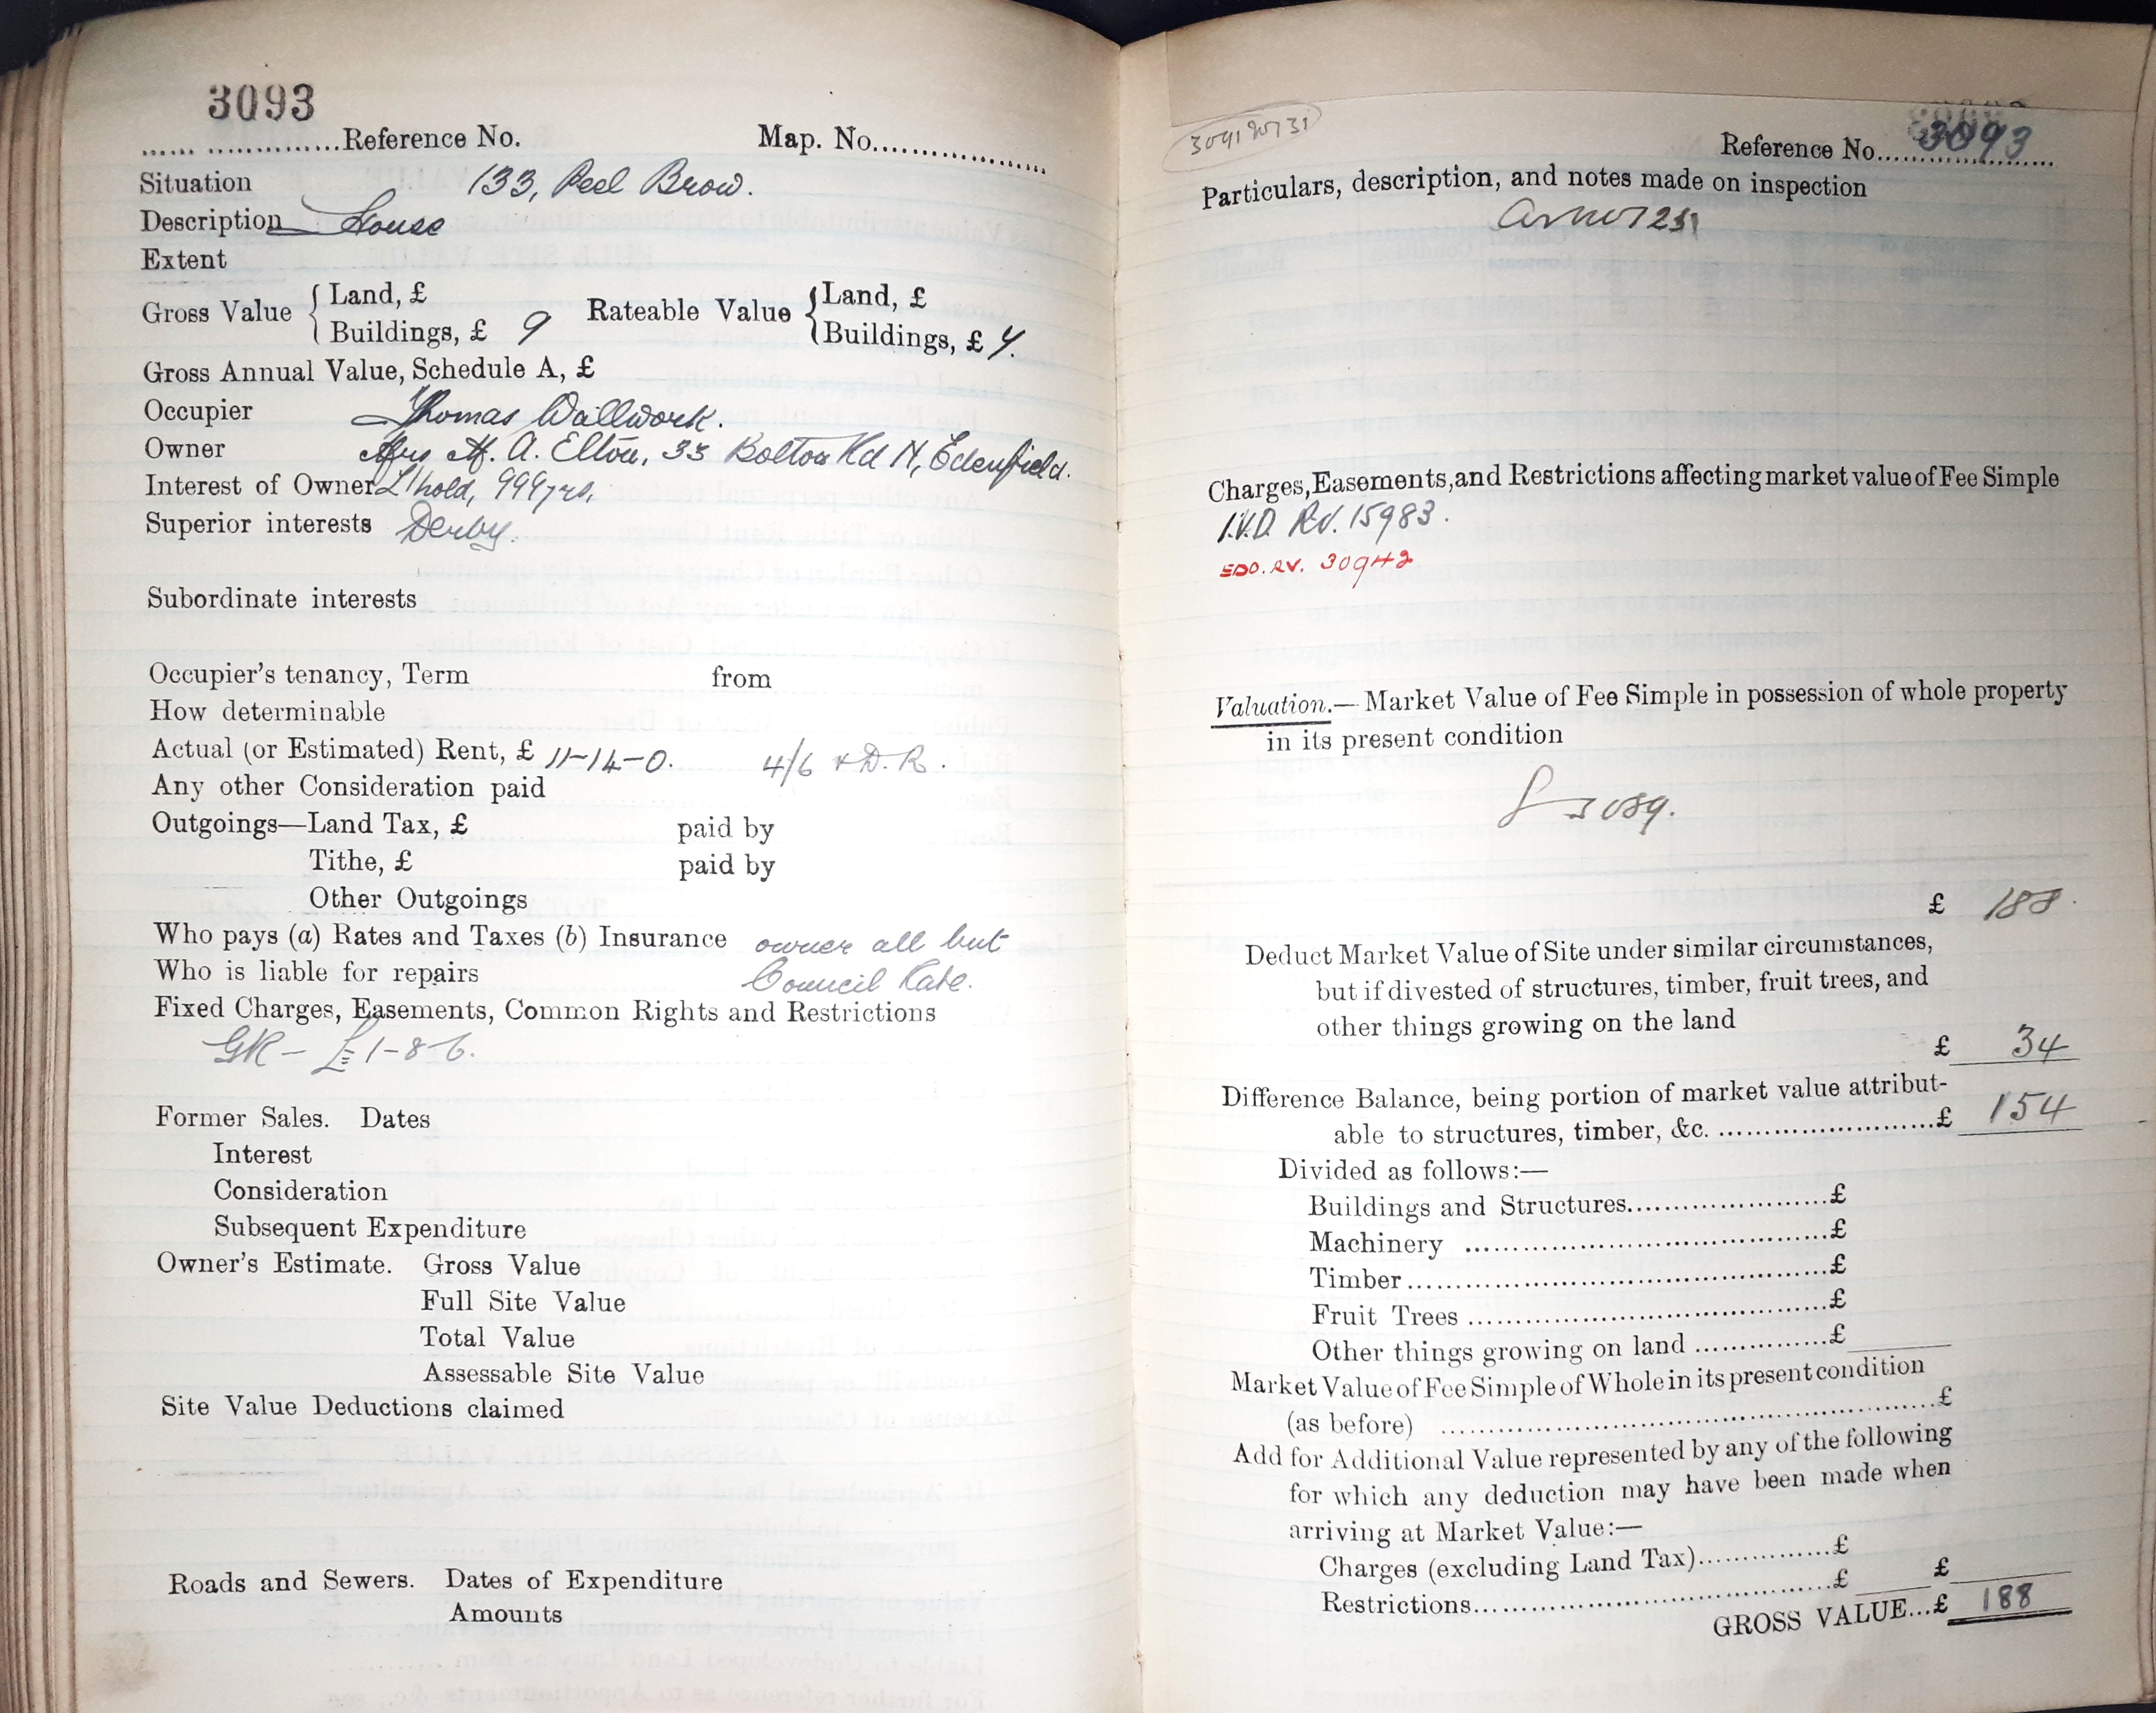 3093
...................Reference No. Map. No...................
Situation 133, Peel Brow.
Description House
Extent
Gross Value { Land, £ Rateable Value { Land, £
Buildings, £ 9 Buildings, £ 7.
Gross Annual Value, Schedule A, £
Occupier Thomas Wallwork.
Owner Mrs M. A. Elton, 33 Bolton Rd N, Edenfield.
Interest of Owner L/hold, 999 yrs.
Superior interests Derby.
Subordinate interests
Occupier's tenancy, Term from
How determinable
Actual (or Estimated) Rent, £ 11-14-0. 4/6 + D.R.
Any other Consideration paid
Outgoings—Land Tax, £ paid by
Tithe, £ paid by
Other Outgoings
Who pays (a) Rates and Taxes (b) Insurance owner all but
Who is liable for repairs Council Rate.
Fixed Charges, Easements, Common Rights and Restrictions
GR - £1-8-6.
Former Sales. Dates
Interest
Consideration
Subsequent Expenditure
Owner's Estimate. Gross Value
Full Site Value
Total Value
Assessable Site Value
Site Value Deductions claimed
Roads and Sewers. Dates of Expenditure
Amounts
Reference No. 3093
Particulars, description, and notes made on inspection
Charges, Easements, and Restrictions affecting market value of Fee Simple
I.V.D. RV. 15983.
RV. 30942
Valuation.—Market Value of Fee Simple in possession of whole property
in its present condition
3089.
£ 188.
Deduct Market Value of Site under similar circumstances,
but if divested of structures, timber, fruit trees, and
other things growing on the land
£ 34
Difference Balance, being portion of market value attribut-
able to structures, timber, &c. ..........................£ 154
Divided as follows:—
Buildings and Structures.....................£
Machinery .......................................£
Timber.............................................£
Fruit Trees .......................................£
Other things growing on land ..............£
Market Value of Fee Simple of Whole in its present condition
(as before) .....................................................£
Add for Additional Value represented by any of the following
for which any deduction may have been made when
arriving at Market Value:—
Charges (excluding Land Tax)...............£
Restrictions.......................................£ £
GROSS VALUE...£ 188